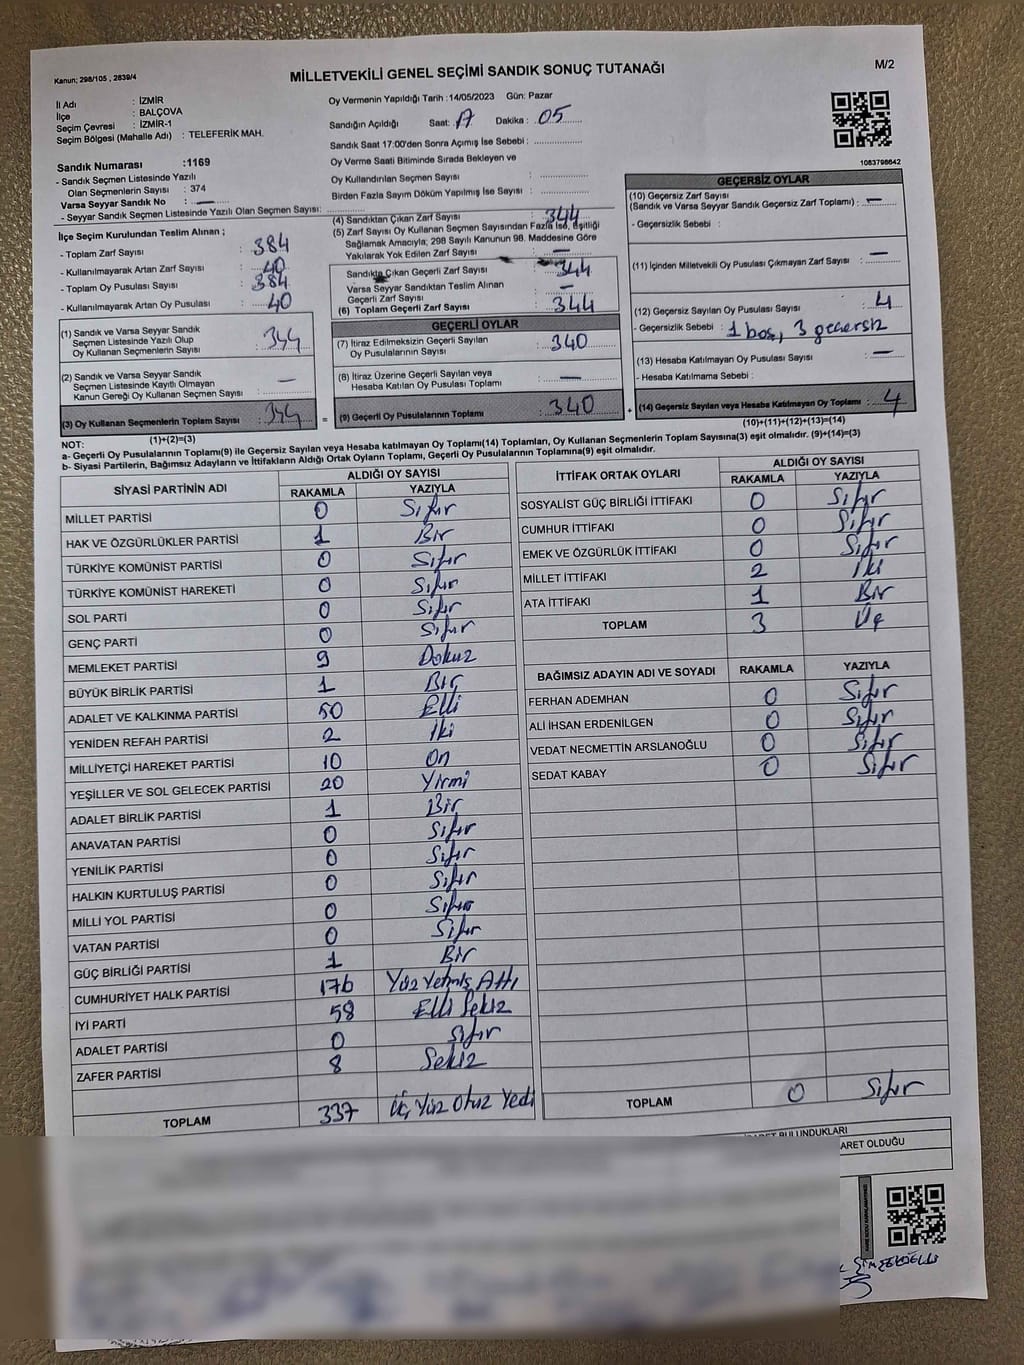 Kanun; 298/105 , 2839/4
MİLLETVEKİLİ GENEL SEÇİMİ SANDIK SONUÇ TUTANAĞI
M/2
İl Adı : İZMİR
İlçe : BALÇOVA
Seçim Çevresi : İZMİR-1
Seçim Bölgesi (Mahalle Adı) : TELEFERİK MAH.
Sandık Numarası :1169
- Sandık Seçmen Listesinde Yazılı
Olan Seçmenlerin Sayısı : 374
Varsa Seyyar Sandık No : —
- Seyyar Sandık Seçmen Listesinde Yazılı Olan Seçmen Sayısı:
Oy Vermenin Yapıldığı Tarih :14/05/2023 Gün: Pazar
Sandığın Açıldığı Saat: 17 Dakika : 05
Sandık Saat 17:00'den Sonra Açımış İse Sebebi :
Oy Verme Saati Bitiminde Sırada Bekleyen ve
Oy Kullandırılan Seçmen Sayısı :
Birden Fazla Sayım Döküm Yapılmış İse Sayısı :
1083798642
İlçe Seçim Kurulundan Teslim Alınan ;
- Toplam Zarf Sayısı : 384
- Kullanılmayarak Artan Zarf Sayısı : 40
- Toplam Oy Pusulası Sayısı : 384
- Kullanılmayarak Artan Oy Pusulası : 40
(1) Sandık ve Varsa Seyyar Sandık
Seçmen Listesinde Yazılı Olup
Oy Kullanan Seçmenlerin Sayısı : 344
(2) Sandık ve Varsa Seyyar Sandık
Seçmen Listesinde Kayıtlı Olmayan
Kanun Gereği Oy Kullanan Seçmen Sayısı : —
(3) Oy Kullanan Seçmenlerin Toplam Sayısı : 344
(1)+(2)=(3)
(4) Sandıktan Çıkan Zarf Sayısı : 344
(5) Zarf Sayısı Oy Kullanan Seçmen Sayısından Fazla İse, Eşitliği
Sağlamak Amacıyla; 298 Sayılı Kanunun 98. Maddesine Göre
Yakılarak Yok Edilen Zarf Sayısı : —
Sandıkta Çıkan Geçerli Zarf Sayısı : 344
Varsa Seyyar Sandıktan Teslim Alınan
Geçerli Zarf Sayısı : —
(6) Toplam Geçerli Zarf Sayısı : 344
GEÇERLİ OYLAR
(7) İtiraz Edilmeksizin Geçerli Sayılan
Oy Pusulalarının Sayısı : 340
(8) İtiraz Üzerine Geçerli Sayılan veya
Hesaba Katılan Oy Pusulası Toplamı : —
= (9) Geçerli Oy Pusulalarının Toplamı : 340
GEÇERSİZ OYLAR
(10) Geçersiz Zarf Sayısı
(Sandık ve Varsa Seyyar Sandık Geçersiz Zarf Toplamı) : —
- Geçersizlik Sebebi :
(11) İçinden Milletvekili Oy Pusulası Çıkmayan Zarf Sayısı : —
(12) Geçersiz Sayılan Oy Pusulası Sayısı : 4
- Geçersizlik Sebebi : 1 boş, 3 geçersiz
(13) Hesaba Katılmayan Oy Pusulası Sayısı : —
- Hesaba Katılmama Sebebi :
+ (14) Geçersiz Sayılan veya Hesaba Katılmayan Oy Toplamı : 4
(10)+(11)+(12)+(13)=(14)
NOT:
a- Geçerli Oy Pusulalarının Toplamı(9) ile Geçersiz Sayılan veya Hesaba katılmayan Oy Toplamı(14) Toplamları, Oy Kullanan Seçmenlerin Toplam Sayısına(3) eşit olmalıdır. (9)+(14)=(3)
b- Siyasi Partilerin, Bağımsız Adayların ve İttifakların Aldığı Ortak Oyların Toplamı, Geçerli Oy Pusulalarının Toplamına(9) eşit olmalıdır.
SİYASİ PARTİNİN ADI ALDIĞI OY SAYISI
RAKAMLA YAZIYLA
MİLLET PARTİSİ 0 Sıfır
HAK VE ÖZGÜRLÜKLER PARTİSİ 1 Bir
TÜRKİYE KOMÜNİST PARTİSİ 0 Sıfır
TÜRKİYE KOMÜNİST HAREKETİ 0 Sıfır
SOL PARTİ 0 Sıfır
GENÇ PARTİ 0 Sıfır
MEMLEKET PARTİSİ 9 Dokuz
BÜYÜK BİRLİK PARTİSİ 1 Bir
ADALET VE KALKINMA PARTİSİ 50 Elli
YENİDEN REFAH PARTİSİ 2 İki
MİLLİYETÇİ HAREKET PARTİSİ 10 On
YEŞİLLER VE SOL GELECEK PARTİSİ 20 Yirmi
ADALET BİRLİK PARTİSİ 1 Bir
ANAVATAN PARTİSİ 0 Sıfır
YENİLİK PARTİSİ 0 Sıfır
HALKIN KURTULUŞ PARTİSİ 0 Sıfır
MİLLİ YOL PARTİSİ 0 Sıfır
VATAN PARTİSİ 0 Sıfır
GÜÇ BİRLİĞİ PARTİSİ 1 Bir
CUMHURİYET HALK PARTİSİ 176 Yüz Yetmiş Altı
İYİ PARTİ 58 Elli Sekiz
ADALET PARTİSİ 0 Sıfır
ZAFER PARTİSİ 8 Sekiz
TOPLAM 337 Üç Yüz Otuz Yedi
İTTİFAK ORTAK OYLARI ALDIĞI OY SAYISI
RAKAMLA YAZIYLA
SOSYALİST GÜÇ BİRLİĞİ İTTİFAKI 0 Sıfır
CUMHUR İTTİFAKI 0 Sıfır
EMEK VE ÖZGÜRLÜK İTTİFAKI 0 Sıfır
MİLLET İTTİFAKI 2 İki
ATA İTTİFAKI 1 Bir
TOPLAM 3 Üç
BAĞIMSIZ ADAYIN ADI VE SOYADI RAKAMLA YAZIYLA
FERHAN ADEMHAN 0 Sıfır
ALİ İHSAN ERDENİLGEN 0 Sıfır
VEDAT NECMETTİN ARSLANOĞLU 0 Sıfır
SEDAT KABAY 0 Sıfır
TOPLAM 0 Sıfır
BULUNDUKLARI
ARET OLDUĞU